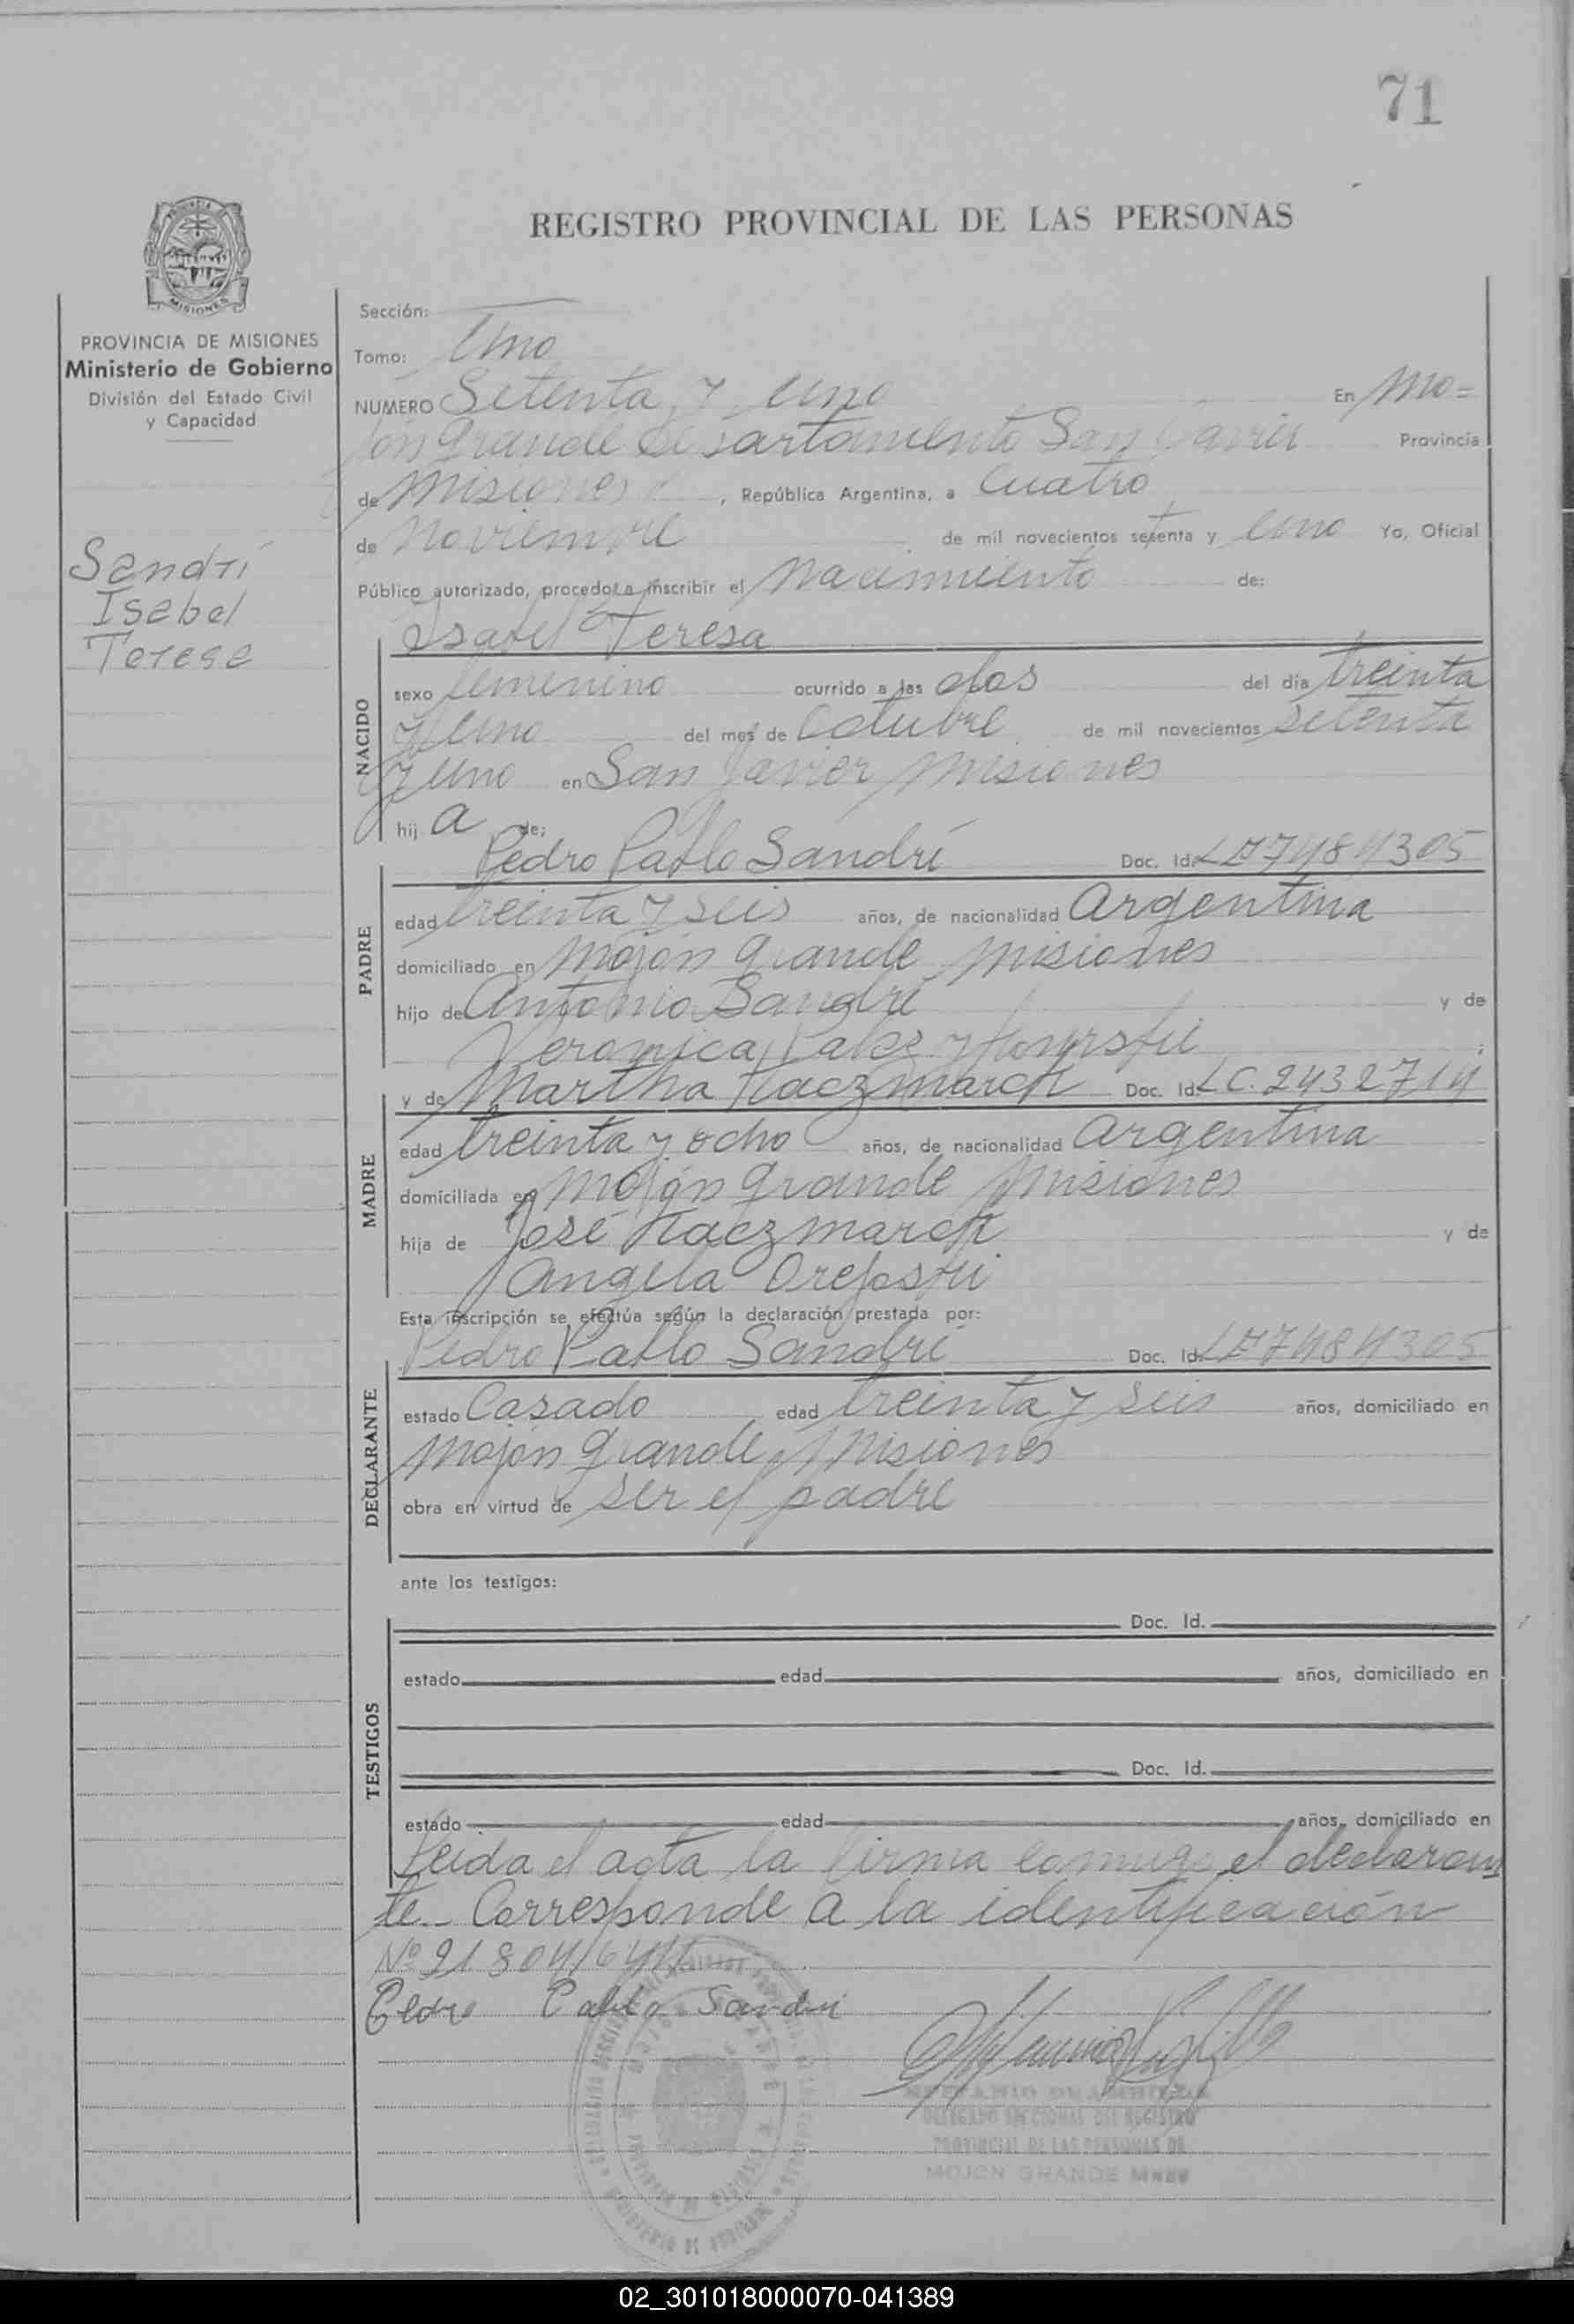 71
REGISTRO PROVINCIAL DE LAS PERSONAS
MISIONES
PROVINCIA DE MISIONES
Ministerio de Gobierno
División del Estado Civil
y Capacidad
Sandrí
Isabel
Teresa
Sección:
Tomo: Uno
NUMERO Setenta y Uno En Mo=
jón Grande Departamento San Javier Provincia
de Misiones, República Argentina, a Cuatro
de Noviembre de mil novecientos setenta y Uno Yo, Oficial
Público autorizado, procedo a inscribir el Nacimiento de:
Isabel Teresa
NACIDO
sexo femenino ocurrido a las dos del día treinta
y Uno del mes de Octubre de mil novecientos setenta
y Uno en San Javier Misiones
hij a de:
Pedro Pablo Sandrí Doc. Id.
PADRE
edad treinta y seis años, de nacionalidad Argentina
domiciliado en Mojón Grande Misiones
hijo de Antonio Sandrí y de
Veronica
y de Martha Kaczmarek Doc. Id. LC. 2432714
MADRE
edad treinta y ocho años, de nacionalidad Argentina
domiciliada en Mojón Grande Misiones
hija de José Kaczmarek y de
Angela
Esta inscripción se efectúa según la declaración prestada por:
Pedro Pablo Sandrí Doc. Id.
DECLARANTE
estado Casado edad treinta y seis años, domiciliado en
Mojón Grande Misiones
obra en virtud de ser el padre
ante los testigos:
TESTIGOS
Doc. Id.
estado edad años, domiciliado en
Doc. Id.
estado edad años, domiciliado en
Leida el acta la firma conmigo el declaran
te.- Corresponde a la identificación
Nº
Pedro Pablo Sandri
DELEGADO SECCIONAL DEL REGISTRO
PROVINCIAL DE LAS PERSONAS DE
MOJON GRANDE Mnes
02_301018000070-041389